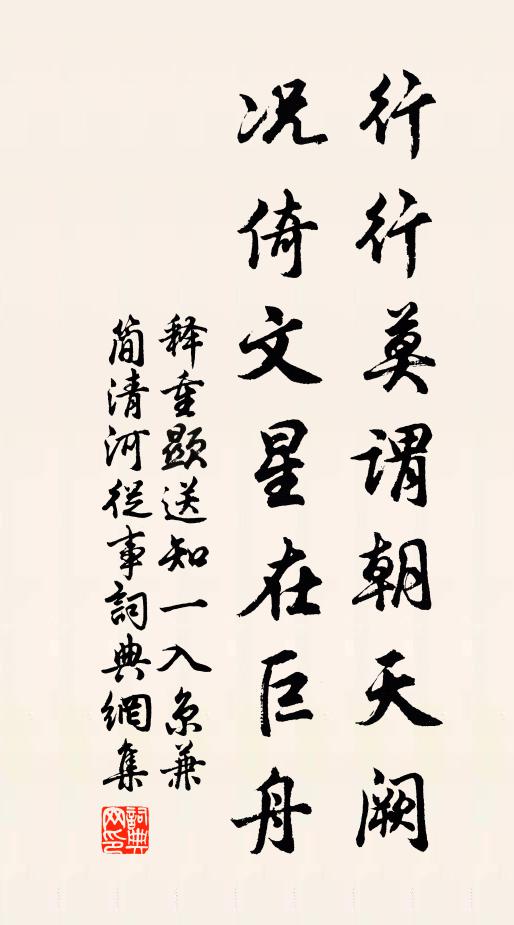 行行莫謂朝天阙
况倚文星在巨舟
释重顯送知一入京兼
简清河從事詞典網集
詞典網印